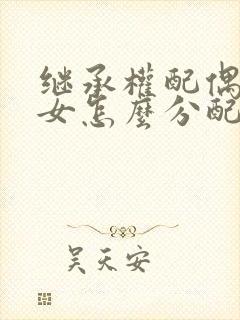 继承權配偶
女怎麼分配
吴天安